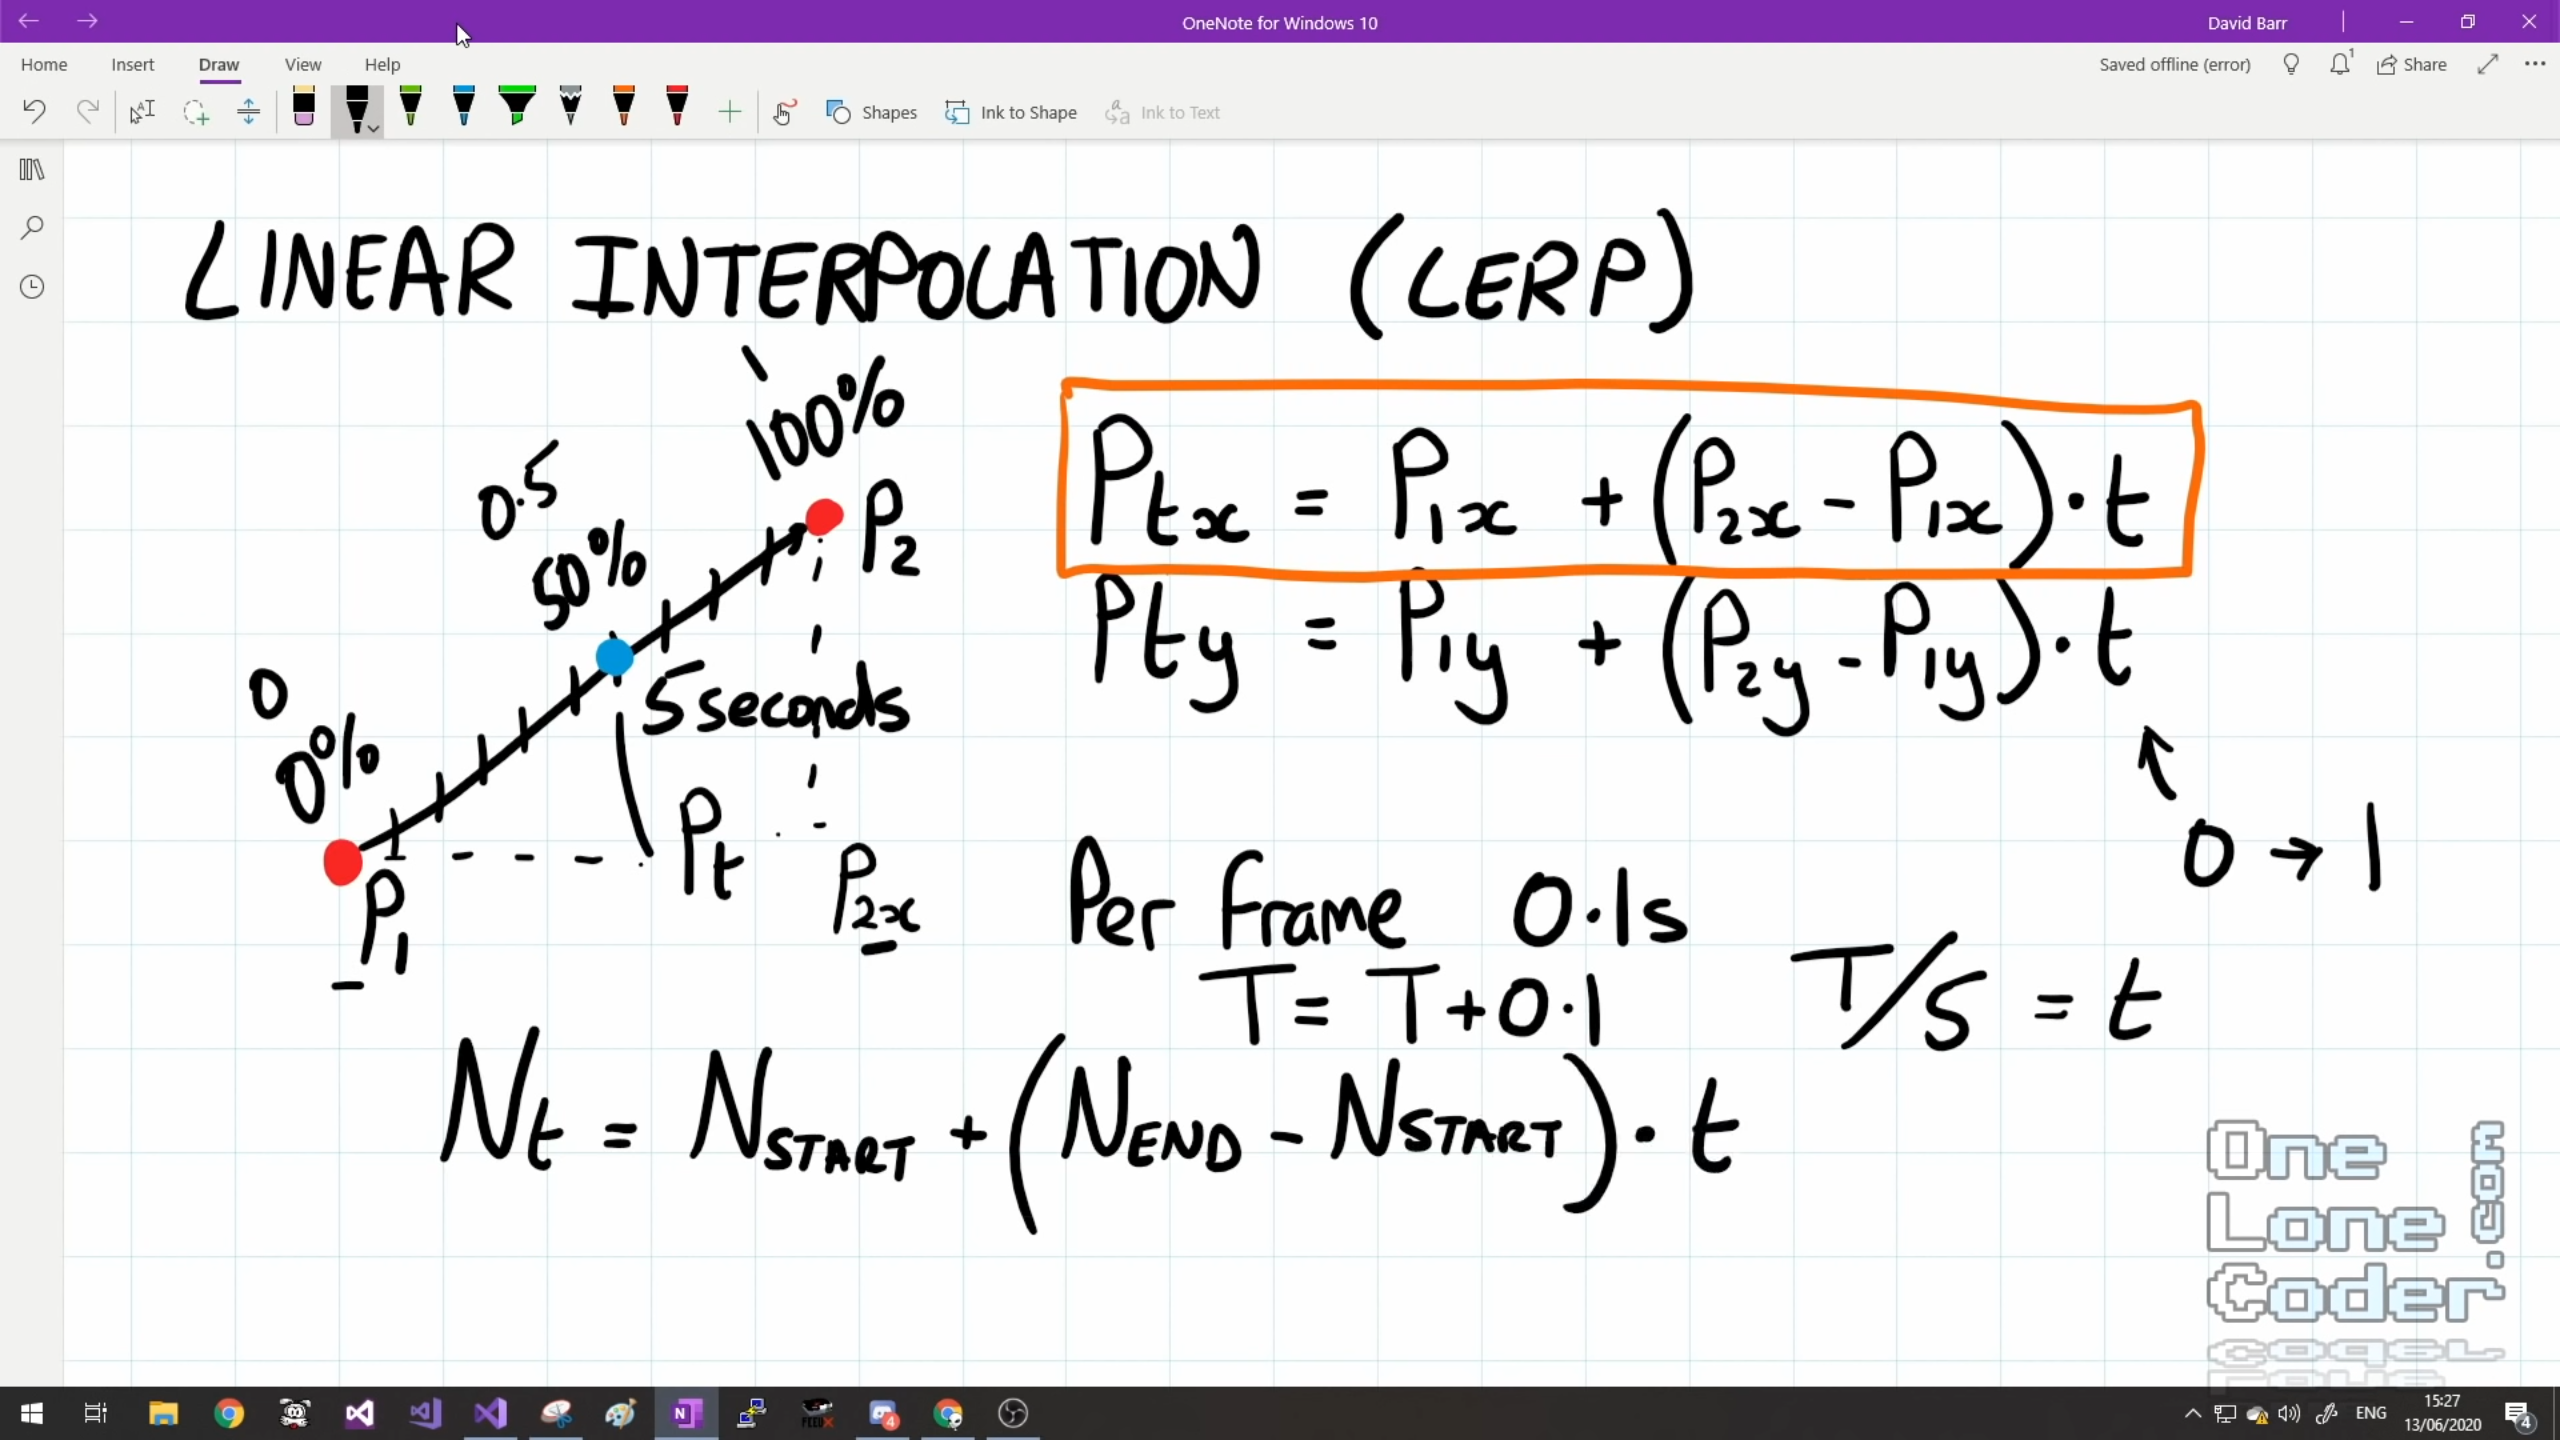 OneNote for Windows 10
David Barr
Home Insert Draw View Help
Saved offline (error)
1
Share
Shapes
Ink to Shape
Ink to Text
LINEAR INTERPOLATION (LERP)
1
100%
0.5
50%
P2
0
0%
5 seconds
Pt
P2x
P1
Ptx = P1x + (P2x - P1x) · t
Pty = P1y + (P2y - P1y) · t
0 → 1
Per Frame 0.1s
T = T + 0.1
T/5 = t
Nt = NSTART + (NEND - NSTART) · t
One
Lone
Coder
.com
N
4
ENG
15:27
13/06/2020
4